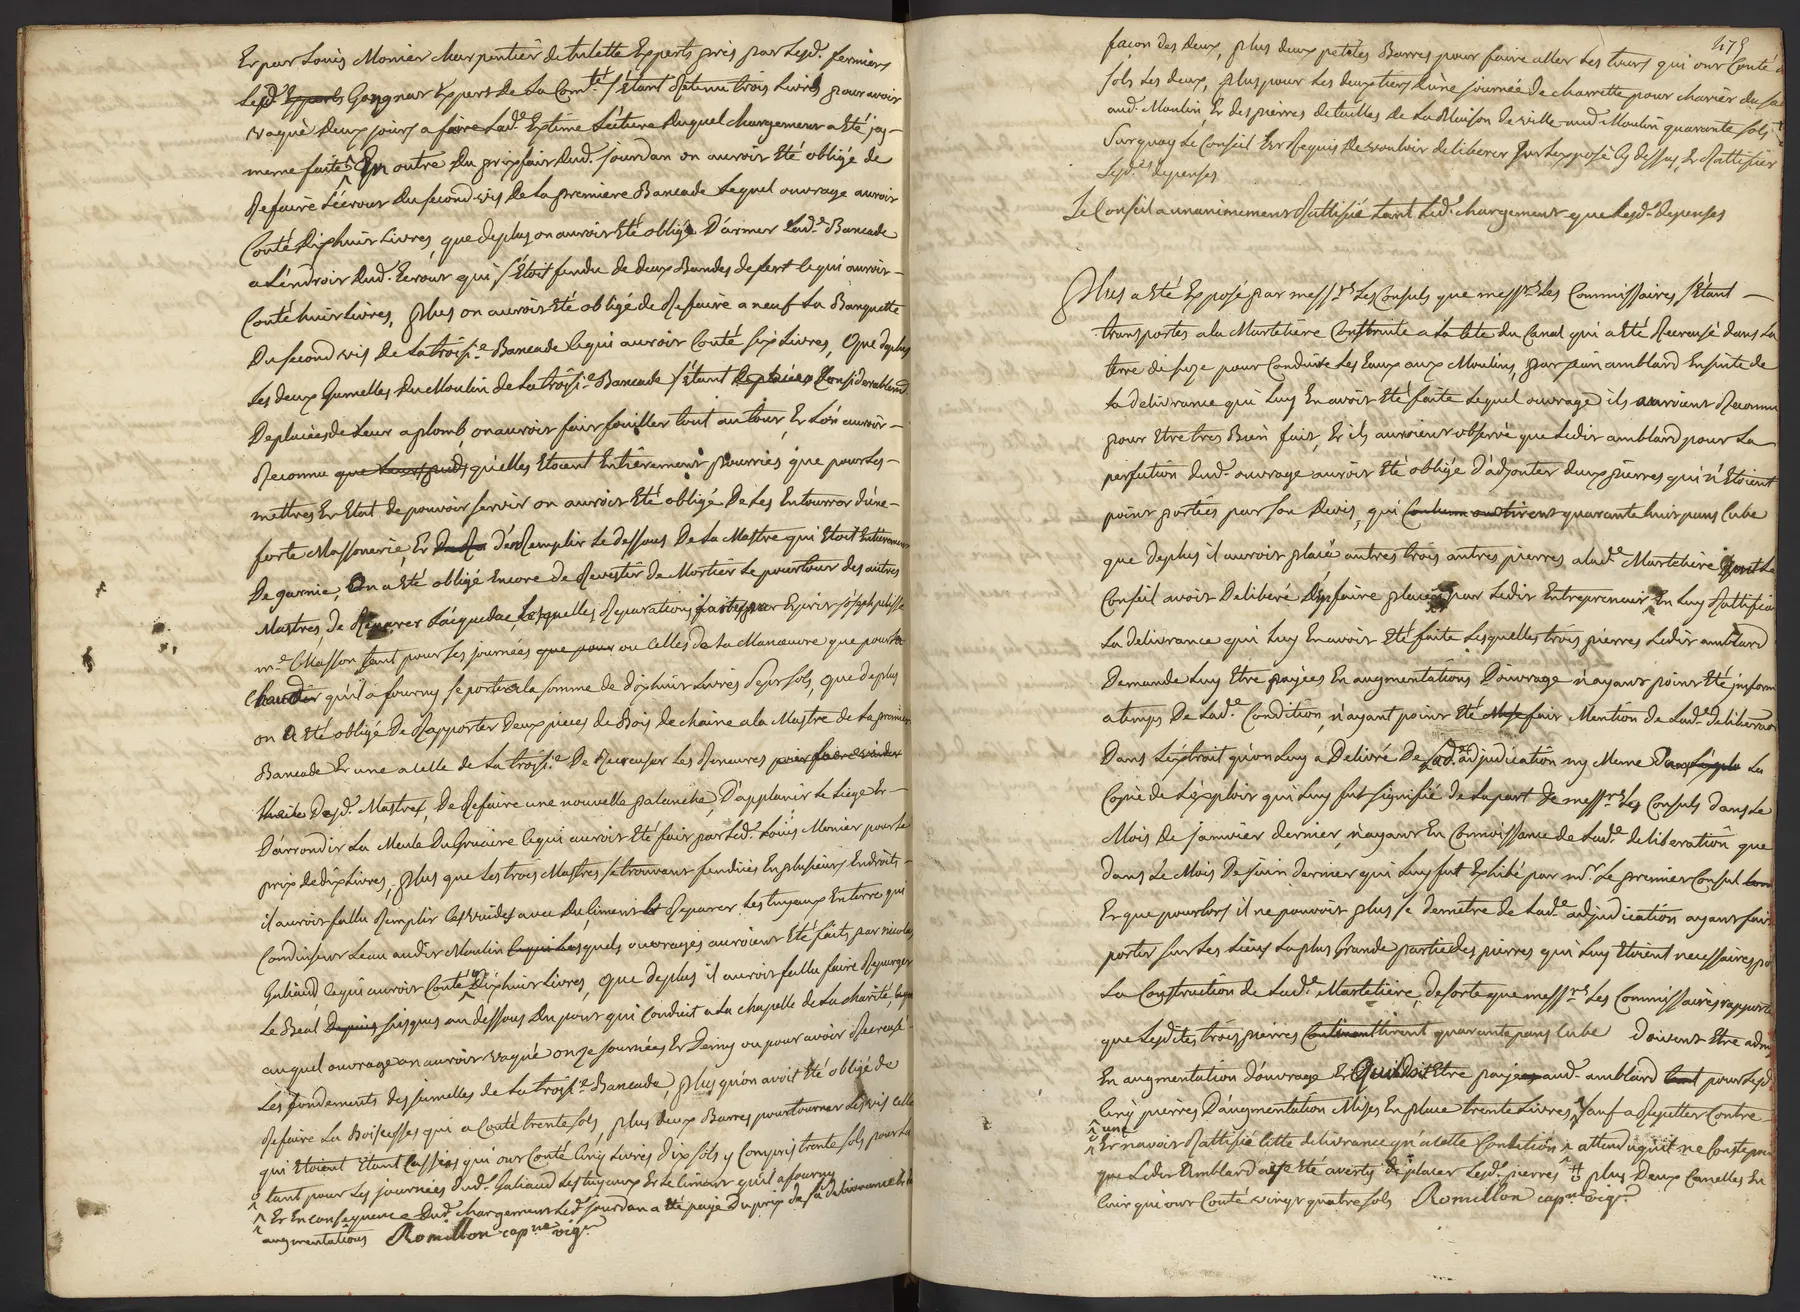 Et par Louis Monier charpentier de tulette Experts pris par lesd. fermiers
Lesd. Experts Gongnar Expert de La Com.té s'étant Retenu trois Livres pour avoir
vaqué deux jours a faire Lad.e Extime L'éture duquel chargement a été
meme faite En outre du prixfait dud. jourdan on auroit Eté obligé de
Refaire L'écrout du second vis de La premiere Bancade Lequel ouvrage auroit
Couté dixhuit Livres, que deplus on auroit Eté obligé D'armer Lad.e Bancade
a L'éndroit dud. Ecrout qui s'étoit fendu de deux Bandes de fert Ce qui auroit
Couté huit Livres, plus on auroit Eté obligé de Refaire a neuf La Banquette
Du second vis de La trois.e Bancade Ce qui auroit Couté six Livres, Que deplus
Les deux Gumelles du Moulin de La trois.e Bancade s'étant deplacées Considerablem.t
Deplacées de Leur aplomb on auroit fait fouiller tout au tour, Et L'on auroit
Reconnu que Leurs pieds qu'elles Etoient Entièrement pourries que pour Les
mettres En Etat de pouvoir servir on auroit Eté obligé De Les Entourrer d'une
forte Massonerie, Et d'en Remplir Le dessous De La Mastre qui Etoit Entierement
De garnie, On a Eté obligé Encore de Revestir de Mortier Le pourtour des autres
Mastres de Reparer L'aqueduc, Lesquelles Reparations faites par Esprit joseph
m.e Masson tant pour Les journées que pour ou Celles de La Manoeuvre que pour La
chaux qu'il a fourny se porter a la somme de dixhuit Livres sept sols, que deplus
on a Eté obligé De Rapporter deux pieces de Bois de chaine a la Mastre de La premiere
Bancade Et une a celle de La trois.e De Recreuser Les Reneures pour faire vuider
Desd. Mastres, De Refaire une nouvelle palanche, D'applanir Le Siege Et
D'arrondir La Meule Du Gruaire Ce qui auroit Eté fait par Led. Louis Monier pour Le
prix de dix Livres, plus que Les trois Mastres se trouvant fendües En plusieurs Endroits
il auroit fallu Remplir Les vuides avec du Ciment Et Reparer Les tuyaux En terre qui
Conduisent L'eau audit Moulin Lesquels ouvrages auroient Eté faits par nicolas
Galiaud, Ce qui auroit Couté Dixhuit Livres, que deplus il auroit fallu faire Repurger
Le Beal Depuis jusques au dessous du pont qui Conduit a La chapelle de La charité,
auquel ouvrage on auroit vaqué onze journées Et Demy ou pour avoir Recreusé
Les fondements des jumelles de La trois.e Bancade, plus qu'on avoit Eté obligé de
Refaire La Boisesses qui a Couté trente sols, plus deux Barres pour tourner Les vis
qui Etoient Etant Cassées qui ont Couté Cinq Livres dix sols y Compris trente sols pour La
tant pour Les journées dud. Galiaud Les tuyaux Et Le Ciment qu'il a fourny
Et En consequence Dud. chargement Led. jourdan a été payé Du prix de sa delivrance
augmentations Romillon cap.ne vig.r
475
façon des deux, plus deux petites Barres pour faire aller Les tours qui ont Couté
sols Les deux, plus pour Les deux tiers d'une journée de charrette pour charier du
aud. Moulin Et des pierres detailles de La Maison de ville aud. Moulin quarante sols
Surquoy Le Conseil Est Requis de vouloir deliberer sur L'exposé Cy dessus, Et Rattifier
Lesd.es depenses
Le Conseil a unanimement Rattifié tant Led. chargement que Lesd. depenses
Plus a Eté Exposé par mess.rs Les Consuls que mess.rs Les Commissaires s'étant
transportés a la Marteliere Construite a La tete du Canal qui a Eté Recreusé dans La
terre de suze pour Conduire Les Eaux aux Moulins, par jean amblard Ensuite de
La delivrance qui Luy En avoit Eté faite Lequel ouvrage ils auroient Reconnu
pour Etre tres Bien fait, Et ils auroient observé que Ledit amblard pour La
perfection dud. ouvrage auroit Eté obligé d'adjouter deux pierres qui n'Etoient
point portées par son Devis, qui quarante huit pans Cube
que deplus il auroit placé autres trois autres pierres a lad.e Marteliere Dont Le
Conseil avoit Deliberé De faire placer par Ledit Entrepreneur En Luy Rattifiant
La delivrance qui Luy En avoit Eté faite Lesquelles trois pierres Ledit amblard
Demande Luy Etre payées En augmentations D'ouvrage n'ayant point Eté informé
a temps De Lad.e Condition, n'ayant point Eté fait Mention de Lad.e deliberation
Dans L'extrait qu'on Luy a Delivré De Lad.e adjudication ny Meme La
Copie de L'exploit qui Luy fut signifié de La part de mess.rs Les Consuls dans Le
Mois de janvier dernier, n'ayant En Connoissance de Lad.e deliberation que
dans Le Mois De juin dernier qui Luy fut Exhibé par m.r Le premier Consul
Et que pour Lors il ne pouvoit plus se demetre de Lad.e adjudication ayant fait
porter sur Les Lieux La plus Grande partie des pierres qui Luy Etoient necessaires
La Construction de Lad.e Marteliere, de sorte que mess.rs Les Commissaires
que Lesdites trois pierres quarante pans Cube doivent Etre
En augmentation d'ouvrage Et Qui Doit Etre payé aud. amblard pour Lesd.
Cinq pierres D'augmentation Mises En place trente Livres, sauf a Rejetter Contre
une
Et n'avoit Rattifié Cette delivrance qu'a Cette Condition attendu qu'il ne Conste
que Ledit Amblard aye Eté averty de placer Lesd. pierres plus Deux Canelles En
Cuir qui ont Couté vingt quatre sols Romillon cap.ne vig.r